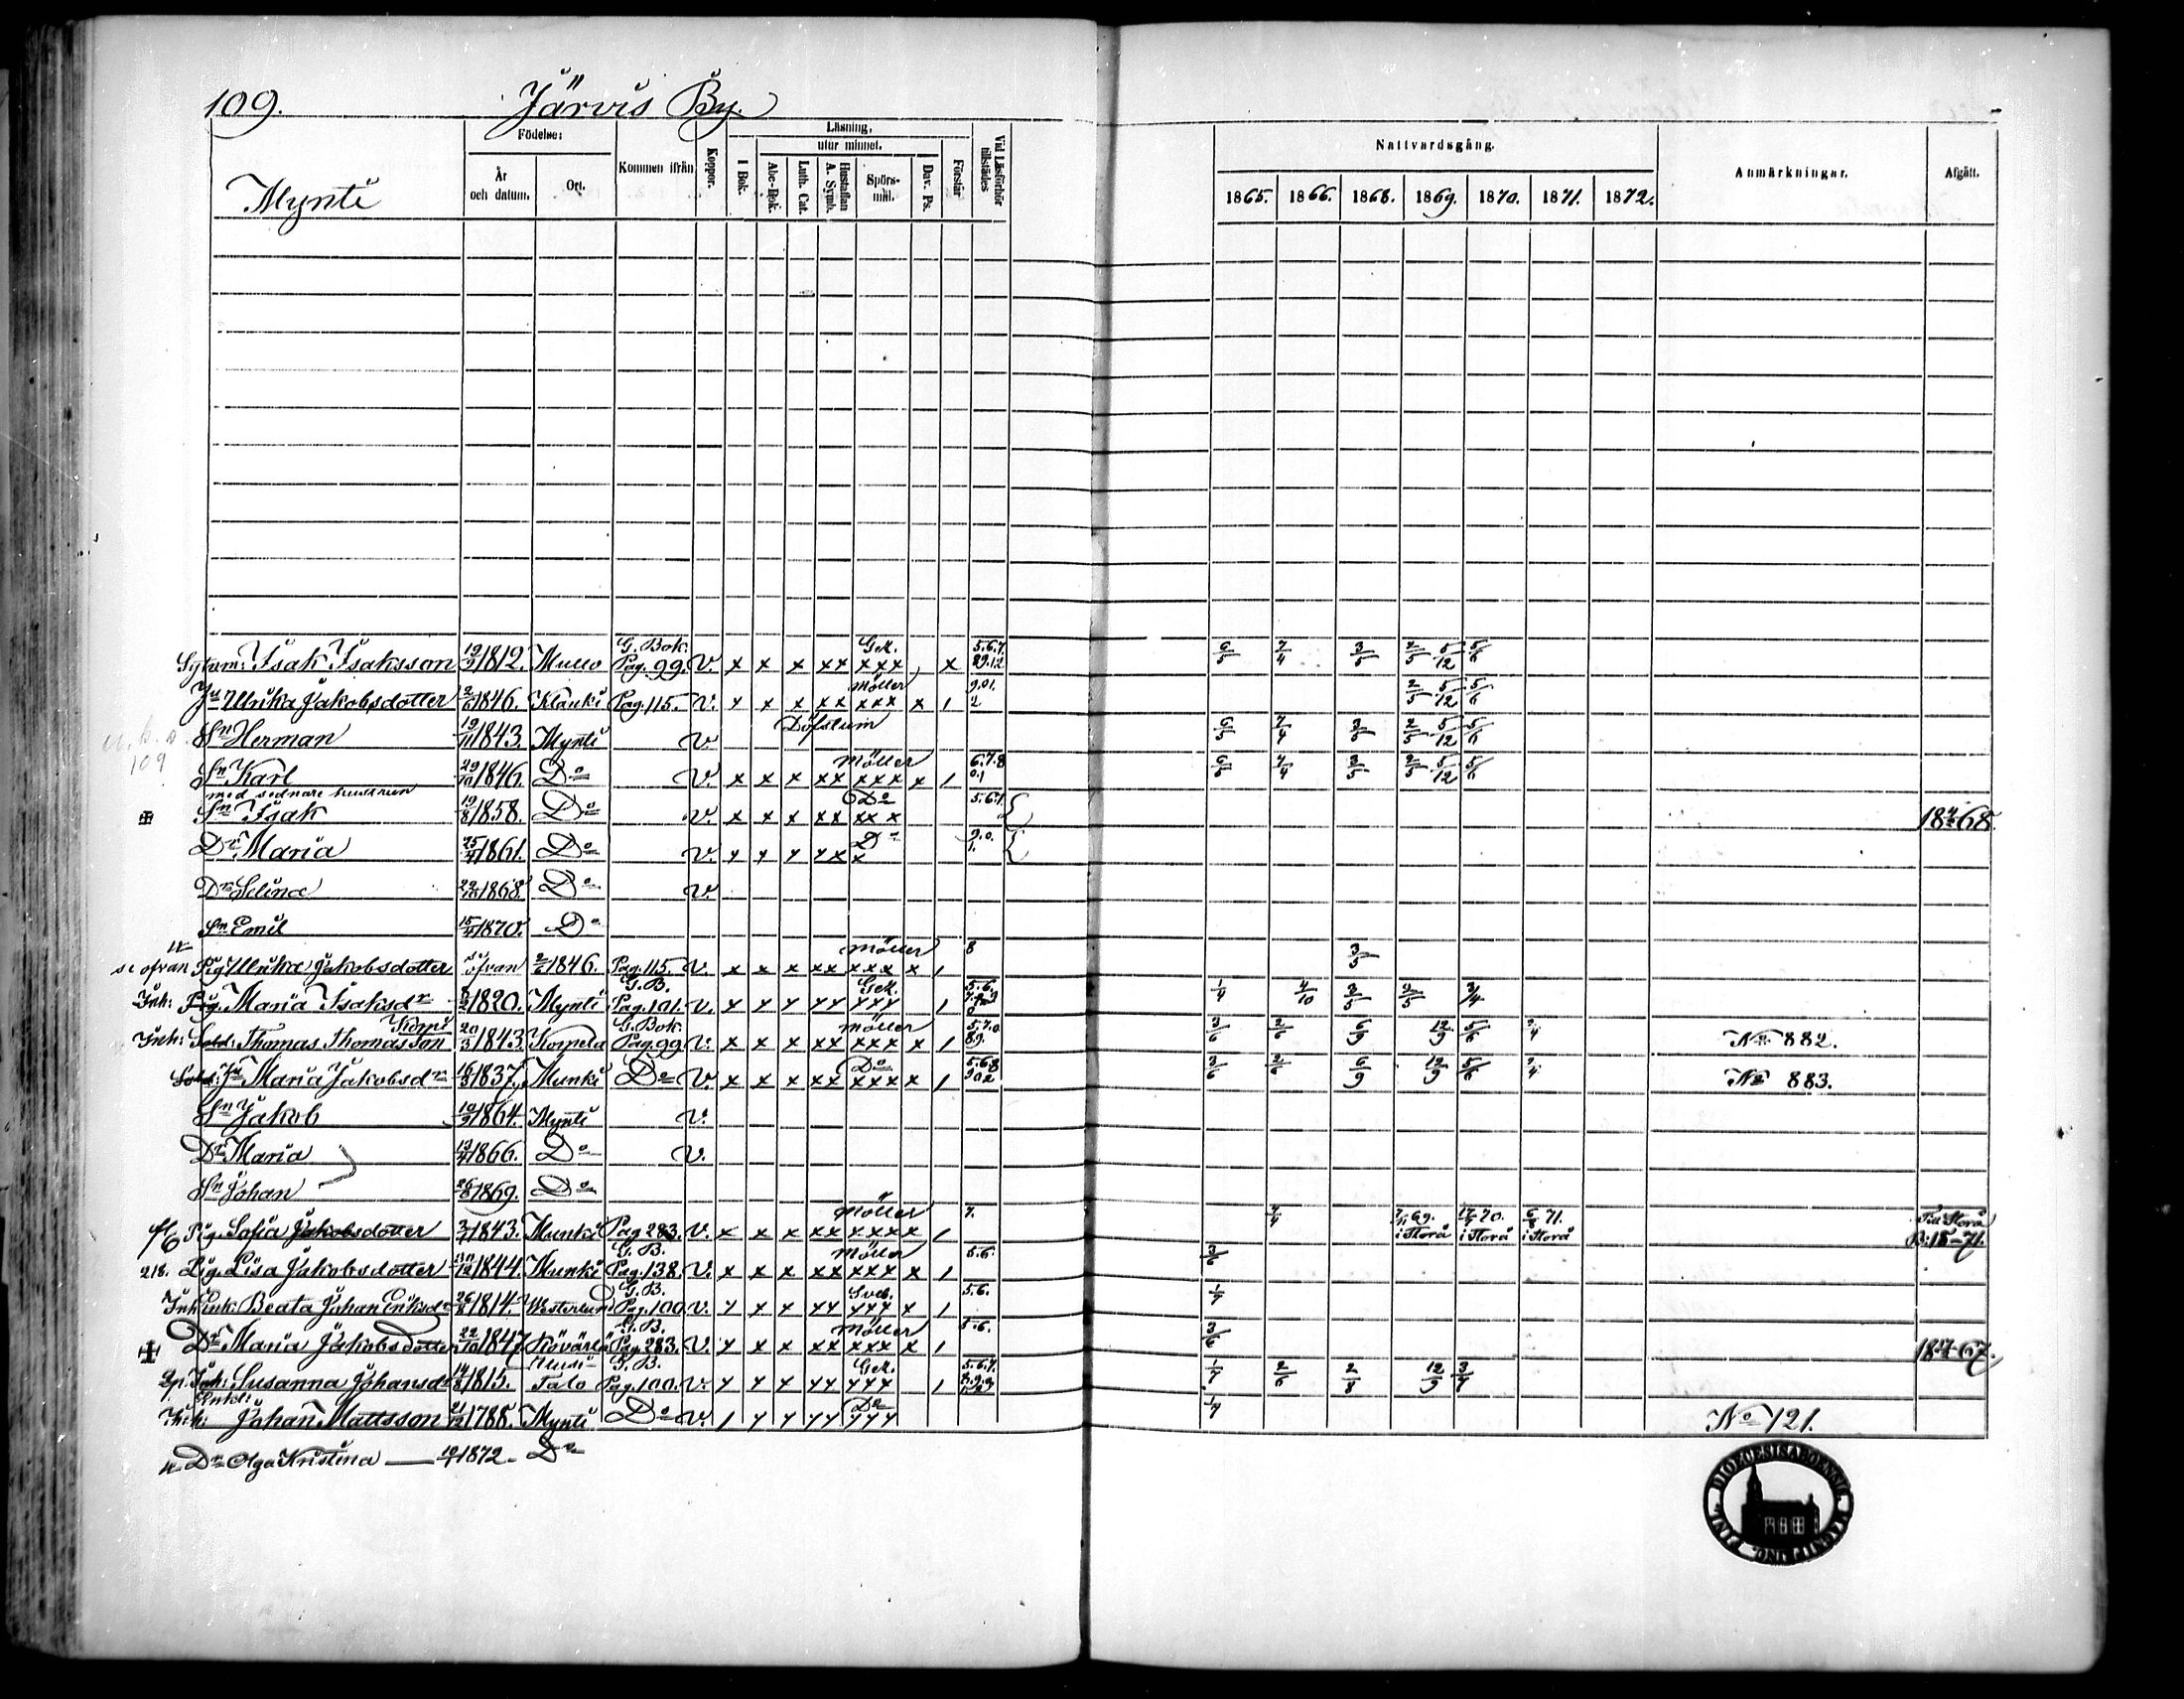 109. Järvis By.
Mynti
Födelse:
År och datum.
Ort.
Kommen ifrån
Koppor.
Läsning,
I Bok.
utur minnet.
Abc-Bok.
Luth. Cat.
Hustaflan A. Symb.
Spörs-mål.
Dav. Ps.
Förstår
Vid Läsförhör tillstädes
Nattvardsgång.
1865. 1866. 1868. 1869. 1870. 1871. 1872.
Anmärkningar.
Afgått.
Isak Isaksson 1812. Muuo G. Bok. Pag. 99. V. x x x xx Gek. xxx x 6/5 7/4 3/5 2/5 5/12 5/6
Hu Ulrika Jakobsdotter 2/6 1846. Klauki Pag. 115. V. x x x xx Möller xxx x 1 2/5 5/12 5/6
Sn Herman 19/11 1843. Mynti V Döfstum 6/5 7/4 3/5 2/5 5/12 5/6
109
Sn Karl 29/10 1846. Do V. x x x xx Möller xxx x 1 6.7.8 0.1 6/5 7/4 3/5 2/5 5/12 5/6
med sednare hustrun
Sn Isak 19/8 1858. Do V. x x x xx Do xx x 5.6.7. 18 68.
Dr Maria 25/4 1861. Do V. x x x x x Do x 9.0. 1.
Dr Selina 1868. Do V.
Sn Emil 1870. Do
se ofvan Pig. Ulrika Jakobsdotter se ofvan 2/6 1846. Pag. 115. V. x x x xx Möller xxx x 1 8 3/5
Inh: Pig. Maria Isaksdr 1820. Mynti G. B. Pag. 101. V. x x x xx Gek. xxx 1 1/4 4/10 3/5 2/5 3/4
Inh: Sold: Thomas Thomasson 20/3 1843. Korpela G. Bok. Pag. 99 V. x x x xx Möller xxx x 1 5.7.0 8.9. 3/6 2/6 6/9 12/9 5/6 2/4 No 882.
Hu Maria Jakobsdr 16/3 1837. Munki Do V. x x x xx Do xxx x 1 5.6.8 3/6 2/6 6/9 12/9 5/6 2/4 No 883.
Sn Jakob 10/9 1864. Mynti V.
Dr Maria 1866. Do V.
Sn Johan 26/8 1869. Do
Pig. Sofia Jakobsdotter 3/7 1843. Munki Pag 283. V. x x x xx Möller xxx x 1 7. 7/4 i Storå i Storå i Storå Till Storå B: 18-71.
218. Pig. Lisa Jakobsdotter 1844. Munki G. B. Pag. 138. V. x x x xx Möller xxx x 1 5.6. 3/6
Inh Enk: Beata Johan Eriksdr 26/8 1814. Westerlund G. B. Pag. 100. V. x x x xx Sved. xxx x 1 5.6. 1/7
Dr Maria Jakobsdotter 22/10 1847. G. B. Pag. 283. V. x x x xx Möller xxx x 1 5.6. 3/6 18 67.
Inh: Susanna Johansdr 14/8 1815. Talo G. B. Pag. 100. V. x x x xx Gek. xxx 1 5.6.7. 1/7 2/6 2/8 12/9 3/7
Inh: Enkl: Johan Mattsson 21/12 1788. Mynti Do V. 1 x x xx Do xxx 1/7 No 121.
Dr Olga Kristina 1872. Do